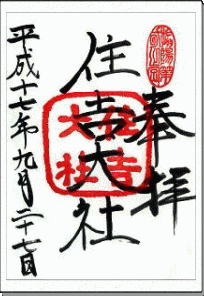 奉拝
住吉大社
住吉
大社
平成十七年九月二十七日